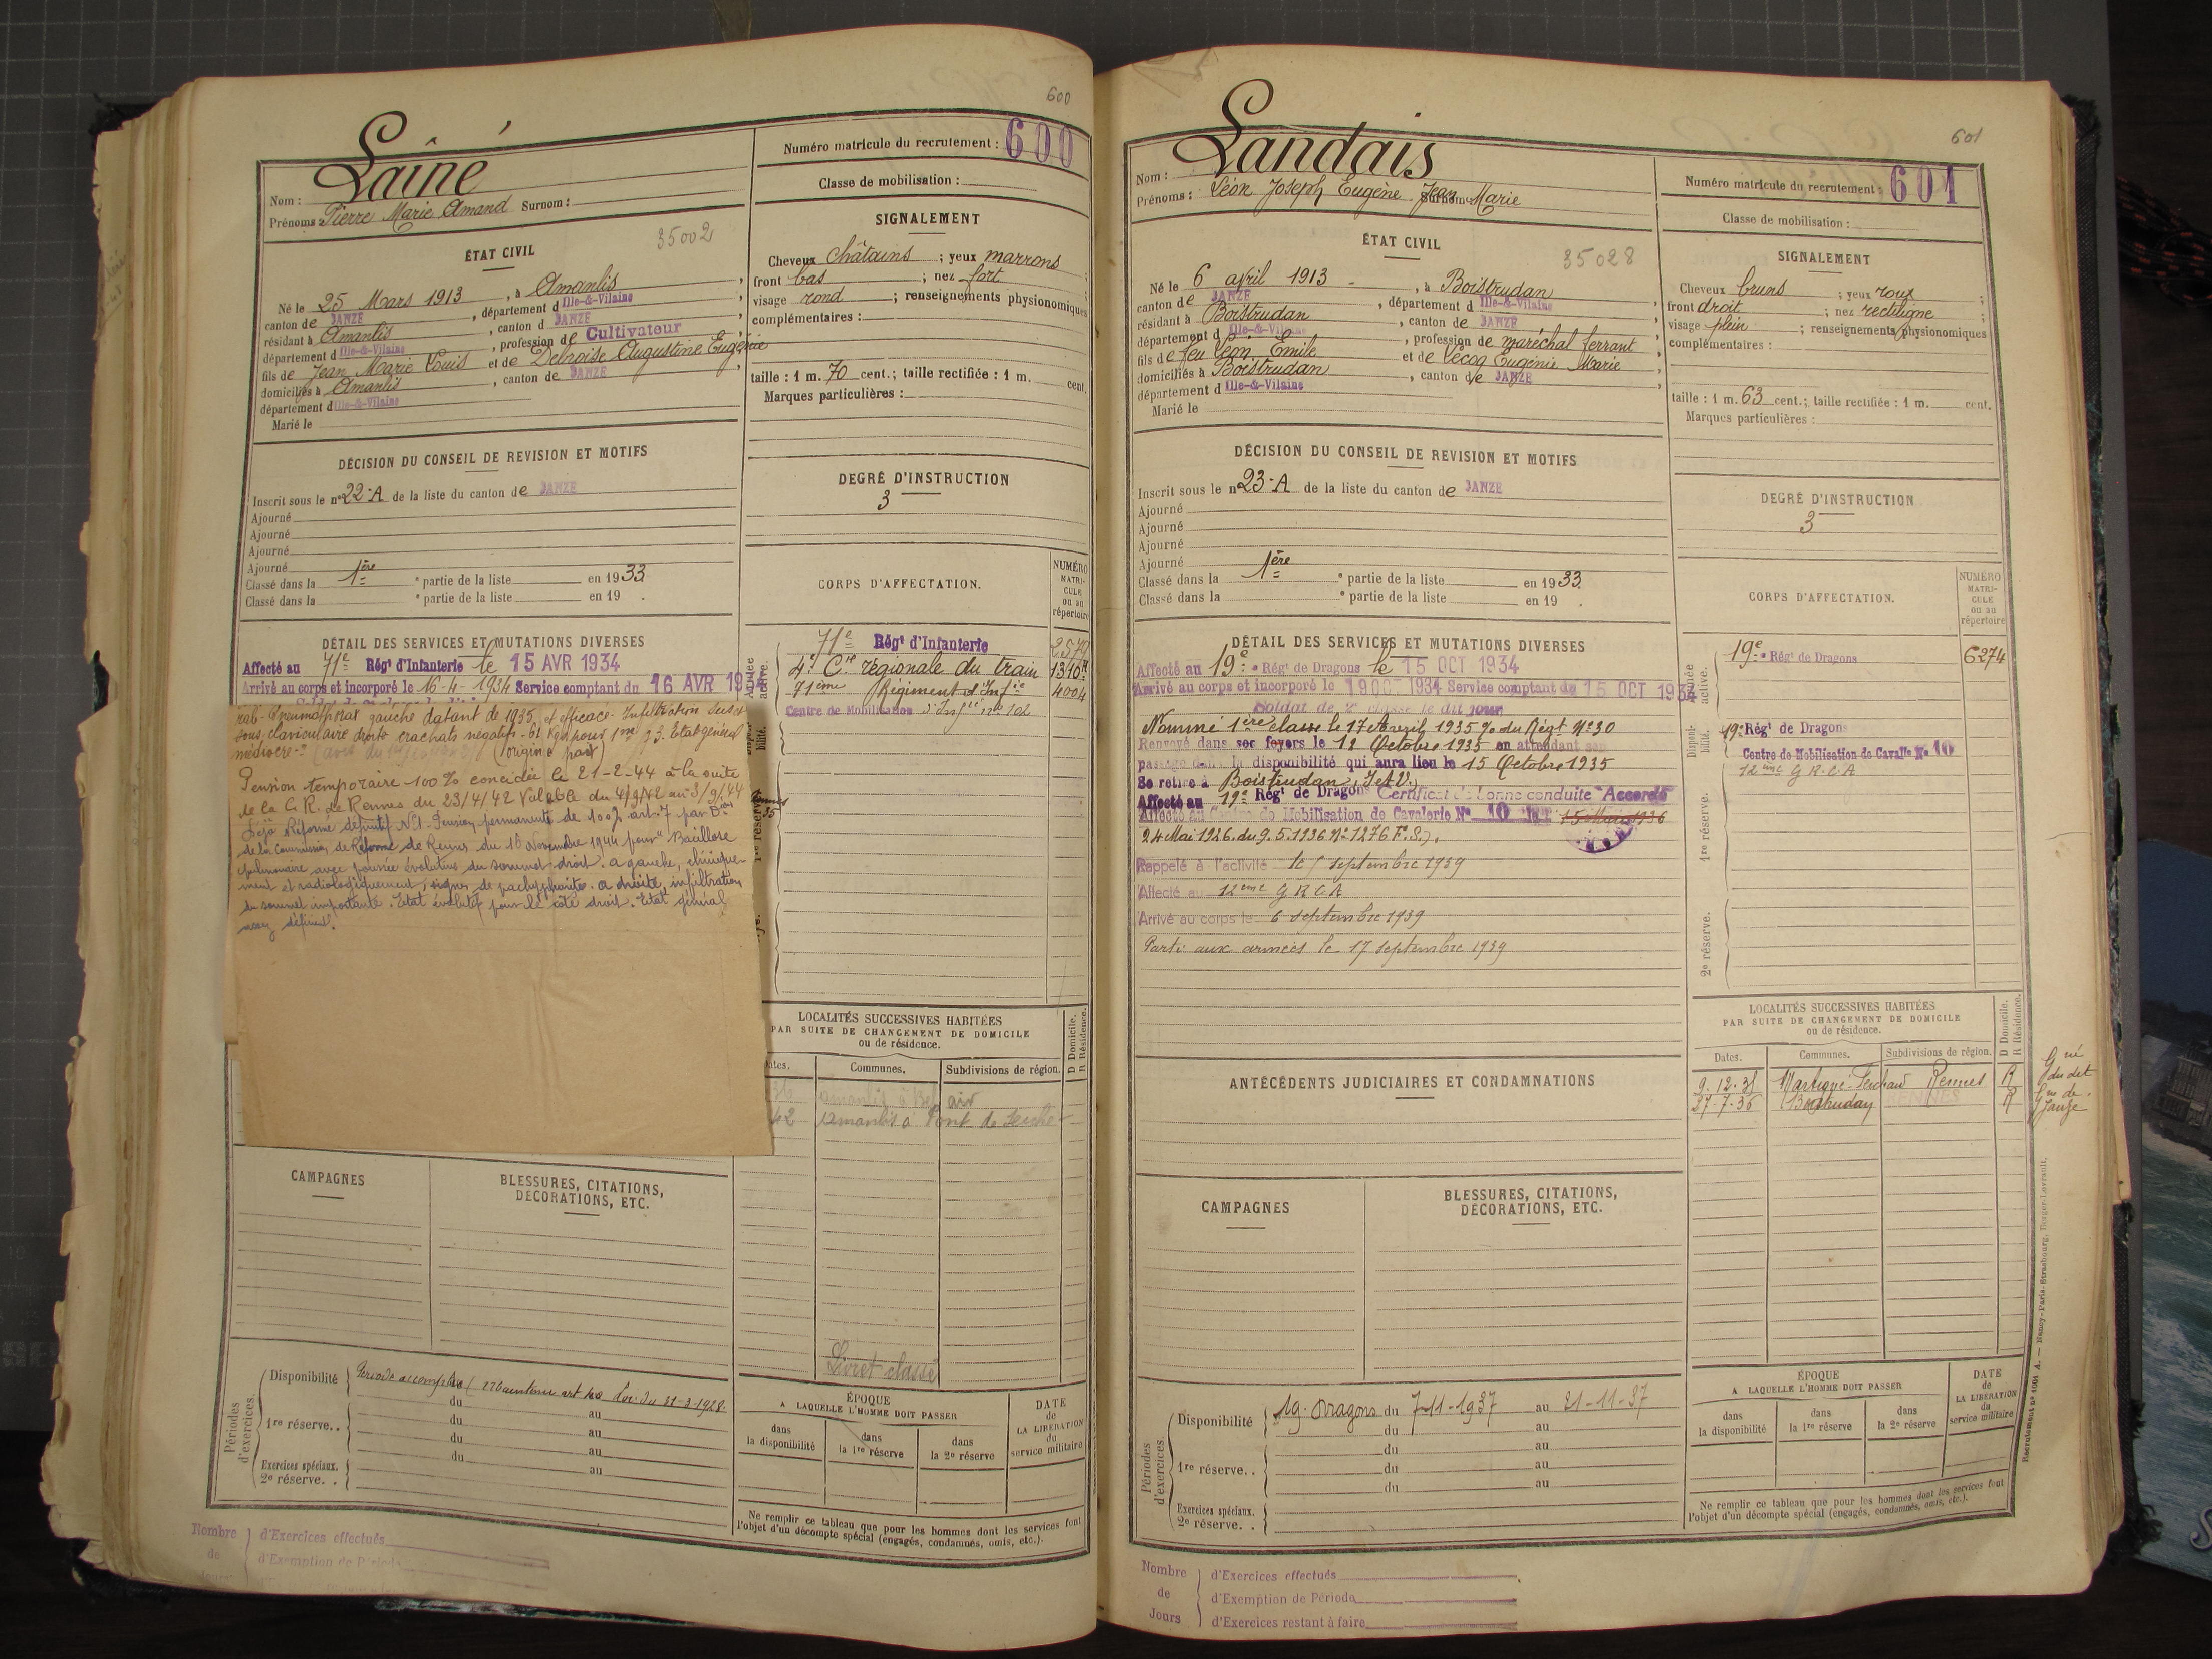 600
Laîné
Nom :
Prénoms : Pierre Marie Amand Surnom :
Numéro matricule du recrutement : 600
Classe de mobilisation :
ÉTAT CIVIL
35002
Né le 25 Mars 1913, à Amanlis,
canton de JANZÉ, département d Ille-&-Vilaine,
résidant à Amanlis, canton d JANZÉ,
département d Ille-&-Vilaine, profession de Cultivateur
fils de Jean Marie Louis et de Delnoise Augustine Eugénie
domiciliés à Amanlis, canton de JANZÉ,
département d Ille-&-Vilaine
Marié le
SIGNALEMENT
Cheveux châtains ; yeux marrons ;
front bas ; nez fort ;
visage rond ; renseignements physionomiques
complémentaires :
taille : 1 m. 70 cent.; taille rectifiée : 1 m. cent.
Marques particulières :
DÉCISION DU CONSEIL DE REVISION ET MOTIFS
Inscrit sous le n° 22-A de la liste du canton de JANZÉ
Ajourné
Ajourné
Ajourné
Ajourné
Classé dans la 1ère partie de la liste en 1933.
Classé dans la partie de la liste en 19 .
DEGRÉ D'INSTRUCTION
3
CORPS D'AFFECTATION.
NUMÉRO MATRI-CULE ou au répertoire
DÉTAIL DES SERVICES ET MUTATIONS DIVERSES
Affecté au 71e Régt d'Infanterie le 15 AVR 1934
Arrivé au corps et incorporé le 16-4-1934 Service comptant du 16 AVR 19
pneumothorax gauche datant de 1935, et efficace. Infiltration
sous claviculaire droite crachats négatifs. 61 Kg pour 1m 73. Etat général
médiocre
Pension temporaire 100% concédée le 21-2-44 à la suite
de la C.R. de Rennes du 23/4/42 Valable du 4/9/42 au 3/9/44
Déjà Réformé définitif N°1. Pension permanente de 100% art. 7 par Don
de la Commission de Réforme de Rennes du 10 Novembre 1944 pour "Baillose
pulmonaire avec poussée évolutive du sommet droit. a gauche, clinique-
ment et radiologiquement, signes de pachypleurite. a droite, infiltration
du sommet importante. Etat évolutif pour le côté droit. Etat général
assez déficient.
Armée active.
71e Régt d'Infanterie 2579
4e Cie régionale du train 1340
71ème Régiment d'Infie 4004
Centre de Mobilisation d'Infie n° 102
LOCALITÉS SUCCESSIVES HABITÉES
PAR SUITE DE CHANGEMENT DE DOMICILE
ou de résidence.
D Domicile.
R Résidence.
Communes. Subdivisions de région.
36 Amanlis à Bel air
42 Amanlis à Pont de
Livret classé
CAMPAGNES
BLESSURES, CITATIONS,
DÉCORATIONS, ETC.
Périodes d'exercices.
Disponibilité Période accomplie art Loi du 31-3-1928.
du au
1re réserve.. du au
du au
du au
Exercices spéciaux.
2e réserve. .
ÉPOQUE
A LAQUELLE L'HOMME DOIT PASSER
dans la disponibilité
dans la 1re réserve
dans la 2e réserve
DATE de LA LIBÉRATION du service militaire
Ne remplir ce tableau que pour les hommes dont les services font
l'objet d'un décompte spécial (engagés, condamnés, omis, etc.).
Nombre de Jours
d'Exercices effectués
d'Exemption de Période
601
Landais
Nom :
Prénoms : Léon Joseph Eugène Jean Marie
Surnom
Numéro matricule du recrutement : 601
Classe de mobilisation :
ÉTAT CIVIL
35028
Né le 6 avril 1913, à Boistrudan,
canton de JANZÉ, département d Ille-&-Vilaine,
résidant à Boistrudan, canton de JANZÉ,
département d Ille-&-Vilaine, profession de maréchal ferrant,
fils de feu Léon Emile et de Lecoq Eugénie Marie
domiciliés à Boistrudan, canton de JANZÉ,
département d Ille-&-Vilaine
Marié le
SIGNALEMENT
Cheveux bruns ; yeux roux ;
front droit ; nez rectiligne ;
visage plein ; renseignements physionomiques
complémentaires :
taille : 1 m. 63 cent.; taille rectifiée : 1 m. cent.
Marques particulières :
DÉCISION DU CONSEIL DE REVISION ET MOTIFS
Inscrit sous le n° 23-A de la liste du canton de JANZÉ
Ajourné
Ajourné
Ajourné
Ajourné
Classé dans la 1ère partie de la liste en 1933.
Classé dans la partie de la liste en 19 .
DEGRÉ D'INSTRUCTION
3
CORPS D'AFFECTATION.
NUMÉRO MATRI-CULE ou au répertoire
DÉTAIL DES SERVICES ET MUTATIONS DIVERSES
Affecté au 19e Régt de Dragons le 15 OCT 1934
Arrivé au corps et incorporé le 19 OCT 1934 Service comptant du 15 OCT 1934
Soldat de 2e classe le dit jour
Nommé 1ère classe le 17 Avril 1935 % du Régt N° 30
Renvoyé dans ses foyers le 12 Octobre 1935 en attendant son
passage dans la disponibilité qui aura lieu le 15 Octobre 1935
Se retire à Boistrudan (I.&V.)
Affecté au 19e Régt de Dragons Certificat de bonne conduite "Accordé"
Affecté au Centre de Mobilisation de Cavalerie N° 10 15 Mars 1936
24 Mai 1926. du 9.5.1936 N° 1276 F.S.).
Rappelé à l'activité le septembre 1939
Affecté au 12ème G R C A
Arrivé au corps le 6 septembre 1939
Parti aux armées le 17 septembre 1939
Armée active.
19e Régt de Dragons 6274
Disponibilité.
19e Régt de Dragons
Centre de Mobilisation de Cavalie N° 10
12ème G R C A
1re réserve.
2e réserve.
LOCALITÉS SUCCESSIVES HABITÉES
PAR SUITE DE CHANGEMENT DE DOMICILE
ou de résidence.
D Domicile.
R Résidence.
Dates. Communes. Subdivisions de région.
9.12.35 Martigné-Ferchaud Rennes R
27-7-36 Boistrudan RENNES R
Gné du dit
Gne de Janzé
ANTÉCÉDENTS JUDICIAIRES ET CONDAMNATIONS
CAMPAGNES
BLESSURES, CITATIONS,
DÉCORATIONS, ETC.
Périodes d'exercices.
Disponibilité 19. Dragons du 7-11-1937 au 21-11-37
du au
1re réserve.. du au
du au
du au
Exercices spéciaux.
2e réserve. .
ÉPOQUE
A LAQUELLE L'HOMME DOIT PASSER
dans la disponibilité
dans la 1re réserve
dans la 2e réserve
DATE de LA LIBÉRATION du service militaire
Ne remplir ce tableau que pour les hommes dont les services font
l'objet d'un décompte spécial (engagés, condamnés, omis, etc.).
Recrutement n° 1001 A. — Nancy-Paris-Strasbourg, Berger-Levrault.
Nombre de Jours
d'Exercices effectués
d'Exemption de Période
d'Exercices restant à faire